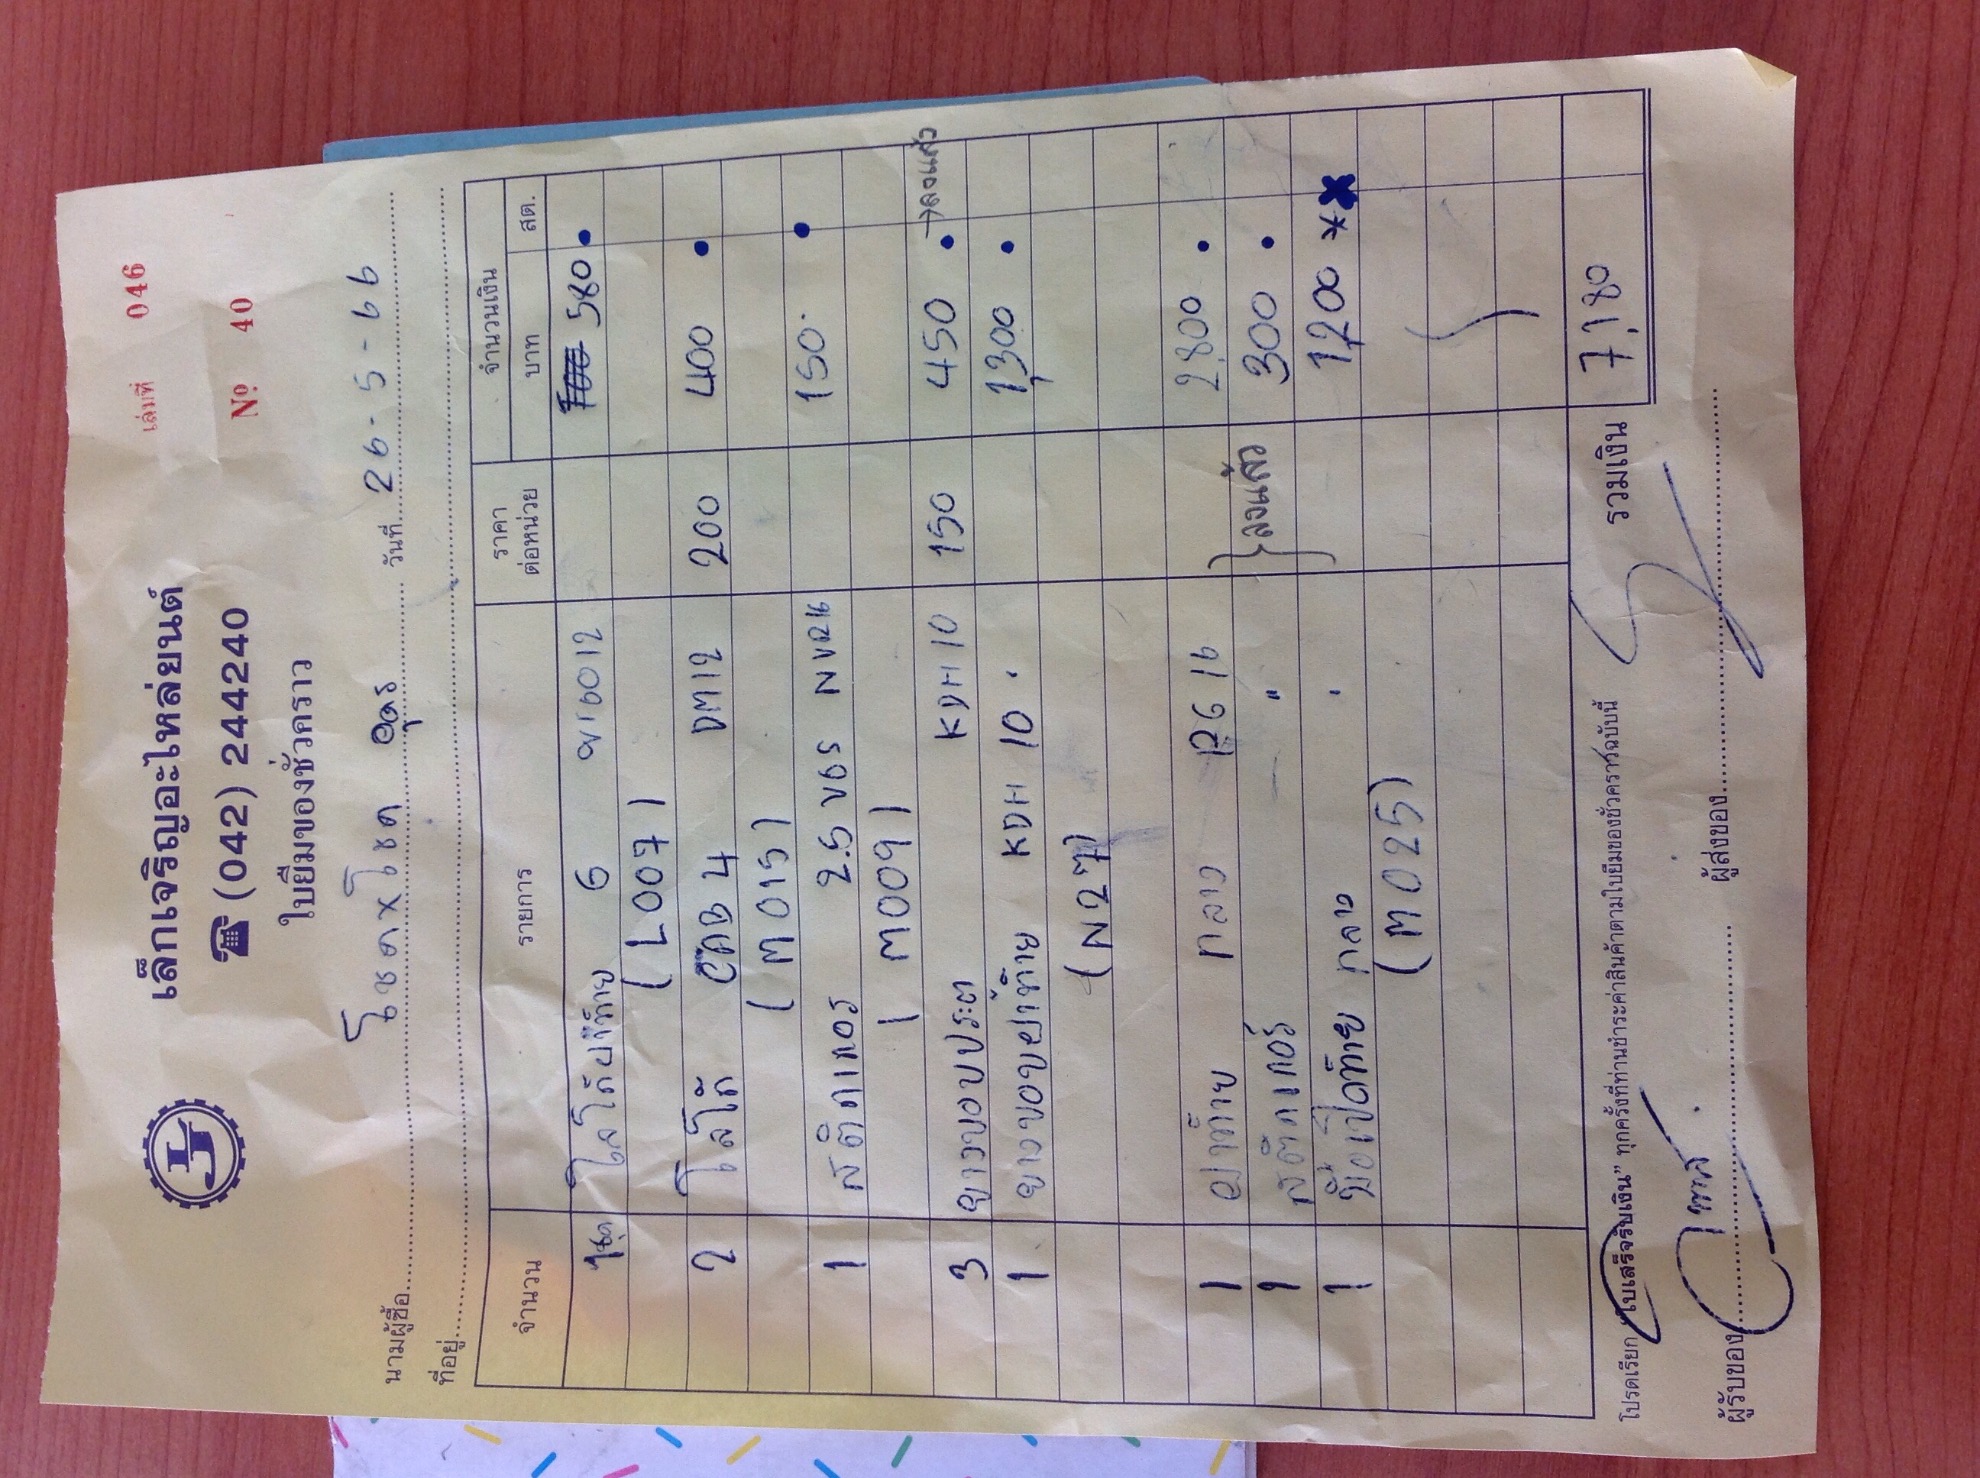 เล่มที่ 046
เล็กเจริญอะไหล่ยนต์
(042) 244240
Nº 40
ใบยืมของชั่วคราว
นามผู้ซื้อ โชคxโชค อุดร วันที่ 26-5-66
ที่อยู่
จำนวน รายการ ราคาต่อหน่วย จำนวนเงิน
บาท สต.
1ชุด โลโก้ฝาท้าย 6 580
(L007)
2 โลโก้ 4 DM12 200 400
(M015)
1 สติกเกอร์ 2.5 VGS NVR16 150
(M009)
3 ยางขอบประตู KDH 10 150 450 →ลงแล้ว
1 ยางขอบฝาท้าย KDH 10 1,300
(N27)
1 ฝาท้าย กลาง RG16 2,800
1 สติกเกอร์ " ลงแล้ว 300
1 มือเปิดท้าย กลาง 1,200
(M025)
รวมเงิน 7,180
โปรดเรียก "ใบเสร็จรับเงิน" ทุกครั้งที่ท่านชำระค่าสินค้าตามใบยืมของชั่วคราวฉบับนี้
ผู้รับของ ผู้ส่งของ